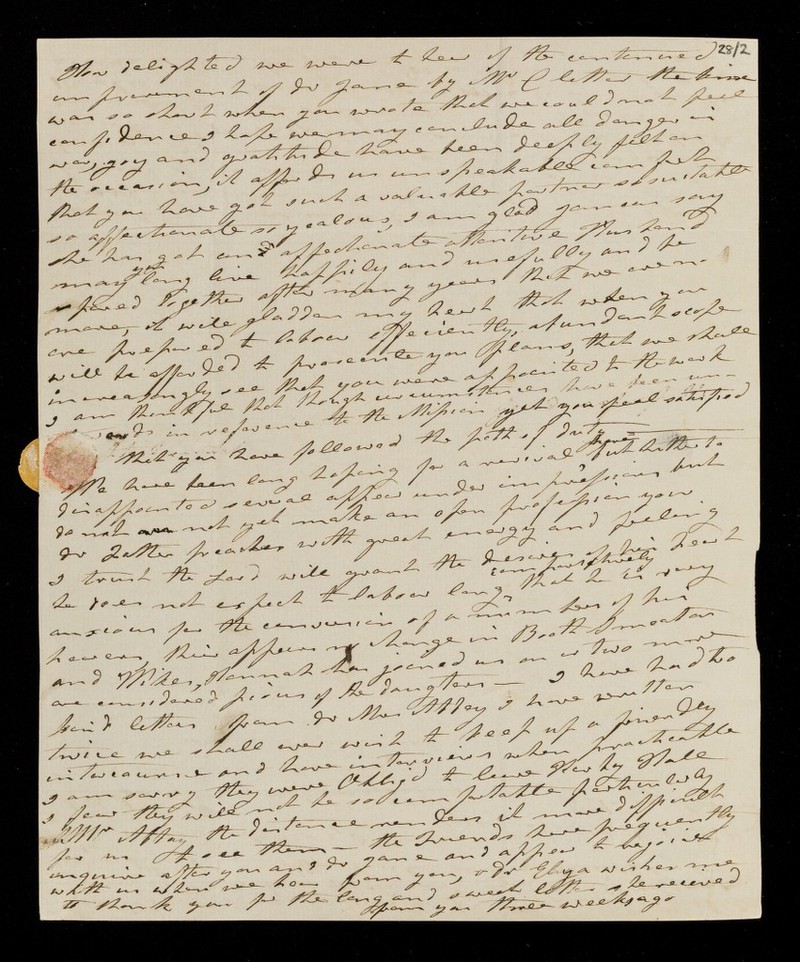 28/2
How delighted we were to hear of the continued
improvement of dr Jane by Mr C letter the time
was so short when you wrote that we could not feel
confidence I hope we may conclude all danger is
over, joy and gratitude have been deeply felt on
the occasion, it affords us unspeakable comfort
that you have got such a valuable partner so suitable
so affectionate so zealous, I am glad Jane can say
she has got an affectionate attentive Husband
may you long live happily and usefully and be
spared together after many years that we are no
more, it will gladden my heart that when you
are prepared to labour efficiently, abundant scope
will be afforded to prosecute your plans, that we shall
increasingly see that you were appointed to the work
I am thankful that though circumstances have been un-
in reference to the Mission yet you feel satisfied
that you have followed the path of duty
We have been long hoping for a revival here but hitherto
disappointed several appear under impressions but
do not yet make an open profession your
dr Father preaches with great energy and feeling
I trust the Lord will grant the desires of his heart
he does not expect to labour long comparatively
anxious for the conversion of a number of his
hearers, that he is very
their appears no change in Booth Smeeton
and Wikes, Hannah has joined us on or two more
are considered pious of the daughters — I have had two
kind letters from dr Mrs Abbey I have written
twice we shall ever wish to keep up a friendly
intercourse and have interviews when practicable
I am sorry they were Obligd to leave Kirby Hall
I fear they will not be so comfortable particularly
Mr Abbey the distance renders it more difficult
for us to see them — the Friends here frequently
enquire after you and dr Jane and appear to rejoice
with us when we hear from you, dr Eliza wishes me
to thank you for the long and sweet letter she received
from you three weeks ago